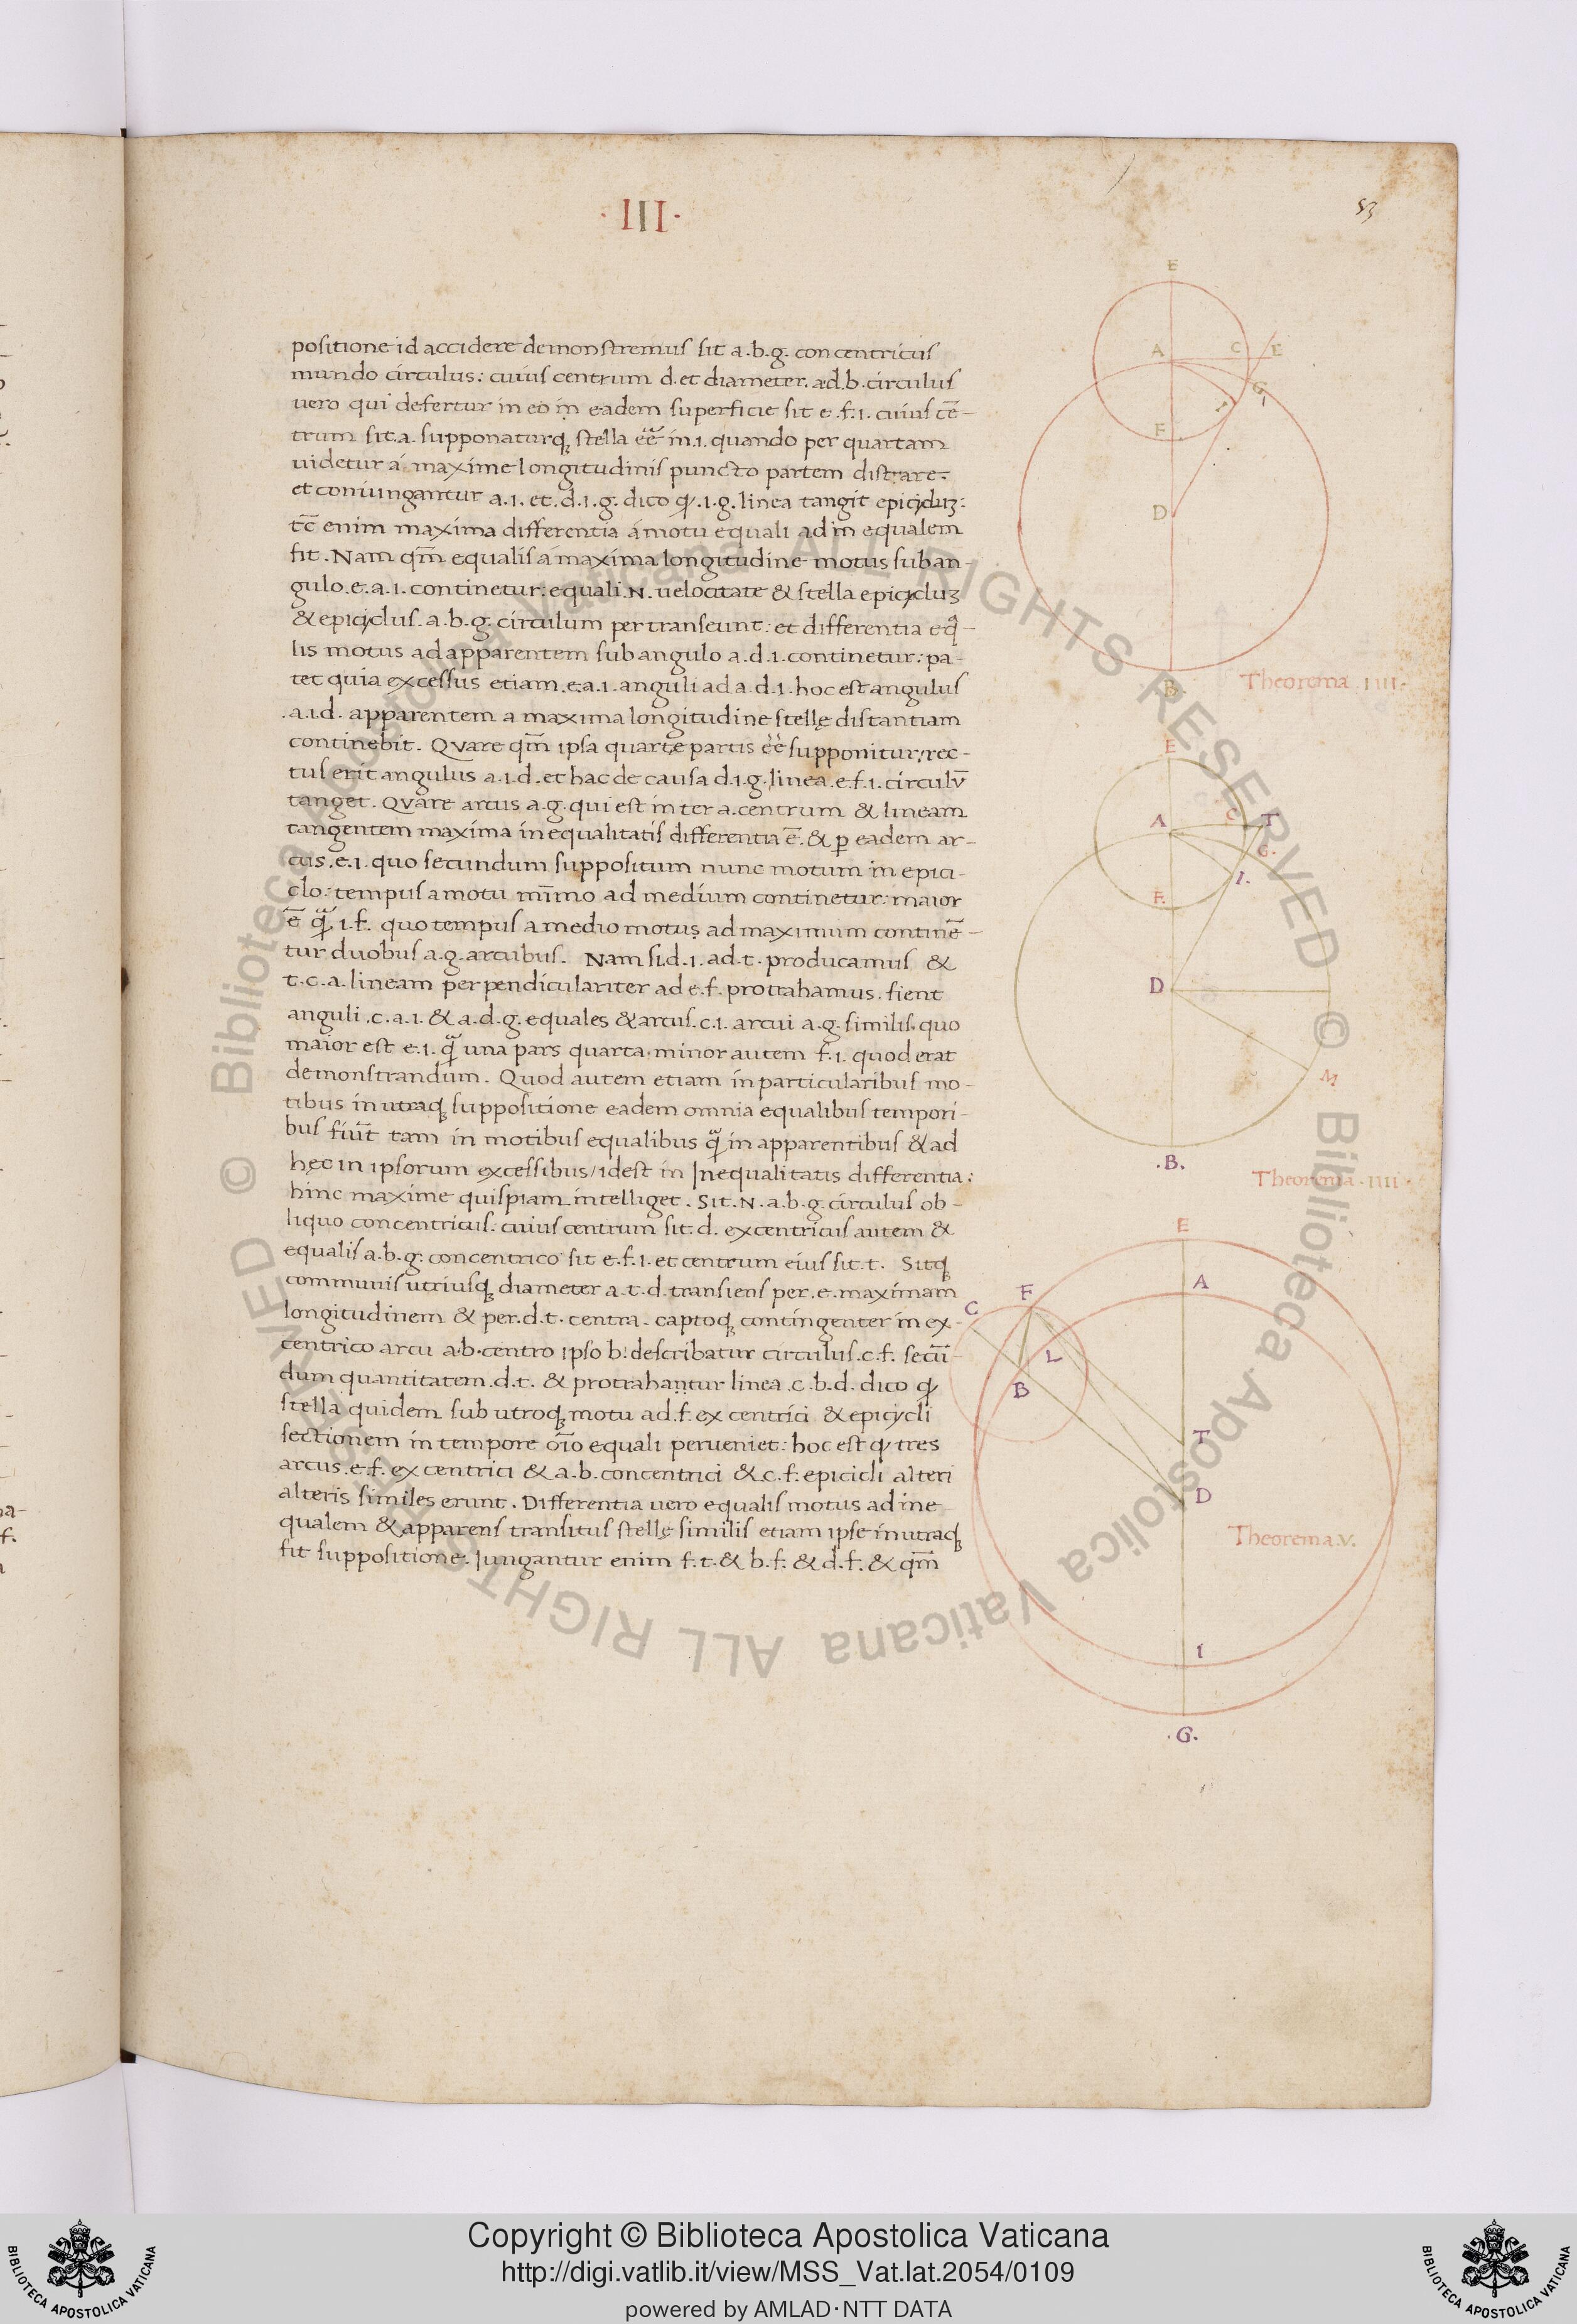 ·III·
53
positione id accidere demonstremus sit a.b.g. concentricus
mundo circulus: cuius centrum d. et diameter. a.d.b. circulus
uero qui defertur in eo in eadem superficie sit e.f.i. cuius cē-
trum sit.a. supponaturq; stella eē in.i. quando per quartam
uidetur á maxime longitudinis puncto partem distare.
et coniungantur a.i. et.d.i.g. dico ꝙ.i.g. linea tangit epicicluꝫ:
tc̄ enim maxima differentia á motu equali ad in equalem
fit. Nam qm̄ equalis á maxima longitudine motus sub an-
gulo.e.a.i. continetur: equali.N. uelocitate & stella epicicluꝫ
& epiciclus.a.b.g. circulum pertranseunt: et differentia eq̄-
lis motus ad apparentem sub angulo a.d.i. continetur: pa-
tet quia excessus etiam.e.a.i. anguli ad a.d.i. hoc est angulus
.a.i.d. apparentem a maxima longitudine stellę distantiam
continebit. Quare qm̄ ipsa quartę partis eē supponitur, rec-
tus erit angulus a.i.d. et hac de causa d.i.g. linea.e.f.i. circulū
tanget. Quare arcus a.g. qui est inter a.centrum & lineam
tangentem maxima inequalitatis differentia ē. & ꝑ eadem ar-
cus.e.i. quo secundum suppositum nunc motum in epici-
clo: tempus a motu mīmo ad medium continetur: maior
ē ꝙ̃ i.f. quo tempus a medio motus ad maximum continē-
tur duobus a.g. arcubus. Nam si.d.i. ad.t. producamus &
t.c.a. lineam perpendiculariter ad e.f. protrahamus. fient
anguli.c.a.i. & a.d.g. equales & arcus.c.i. arcui a.g. similis. quo
maior est e.i. ꝙ̃ una pars quarta. minor autem f.i. quod erat
demonstrandum. Quod autem etiam in particularibus mo-
tibus in utraq; suppositione eadem omnia equalibus tempori-
bus fiūt tam in motibus equalibus ꝙ̃ in apparentibus & ad
hęc in ipsorum excessibus/idest in Inequalitatis differentia:
hinc maxime quispiam intelliget. Sit.N.a.b.g. circulus ob-
liquo concentricus: cuius centrum sit.d. excentricus autem &
equalis a.b.g. concentrico sit e.f.i. et centrum eius sit.t. Sitq;
communis utriusq; diameter a.t.d. transiens per.e. maximam
longitudinem & per.d.t. centra. captoq; contingenter in ex-
centrico arcu a.b. centro ipso b. describatur circulus.c.f. secū-
dum quantitatem.d.t. & protrahantur linea.c.b.d. dico ꝙ
stella quidem sub utroq; motu ad.f. excentrici & epicycli
sectionem in tempore oīo equali perueniet: hoc est ꝙ tres
arcus.e.f. excentrici & a.b. concentrici & c.f. epicicli alteri
alteris similes erunt. Differentia uero equalis motus ad ine-
qualem & apparens transitus stellę similis etiam ipse in utraq;
fit suppositione. Jungantur enim f.t. & b.f. & d.f. & qm̄
E
A
C
E
G
I
F
D
B
Theorema.IIII.
E
A
C
T
G.
I.
F.
D
M
.B.
Theorema.IIII.
E
A
F
C
L
B
T
D
Theorema.V.
I
.G.
© Biblioteca Apostolica Vaticana ALL RIGHTS RESERVED © Biblioteca Apostolica Vaticana ALL RIGHTS RESERVED
Copyright © Biblioteca Apostolica Vaticana
http://digi.vatlib.it/view/MSS_Vat.lat.2054/0109
powered by AMLAD·NTT DATA
BIBLIOTECA APOSTOLICA VATICANA
BIBLIOTECA APOSTOLICA VATICANA